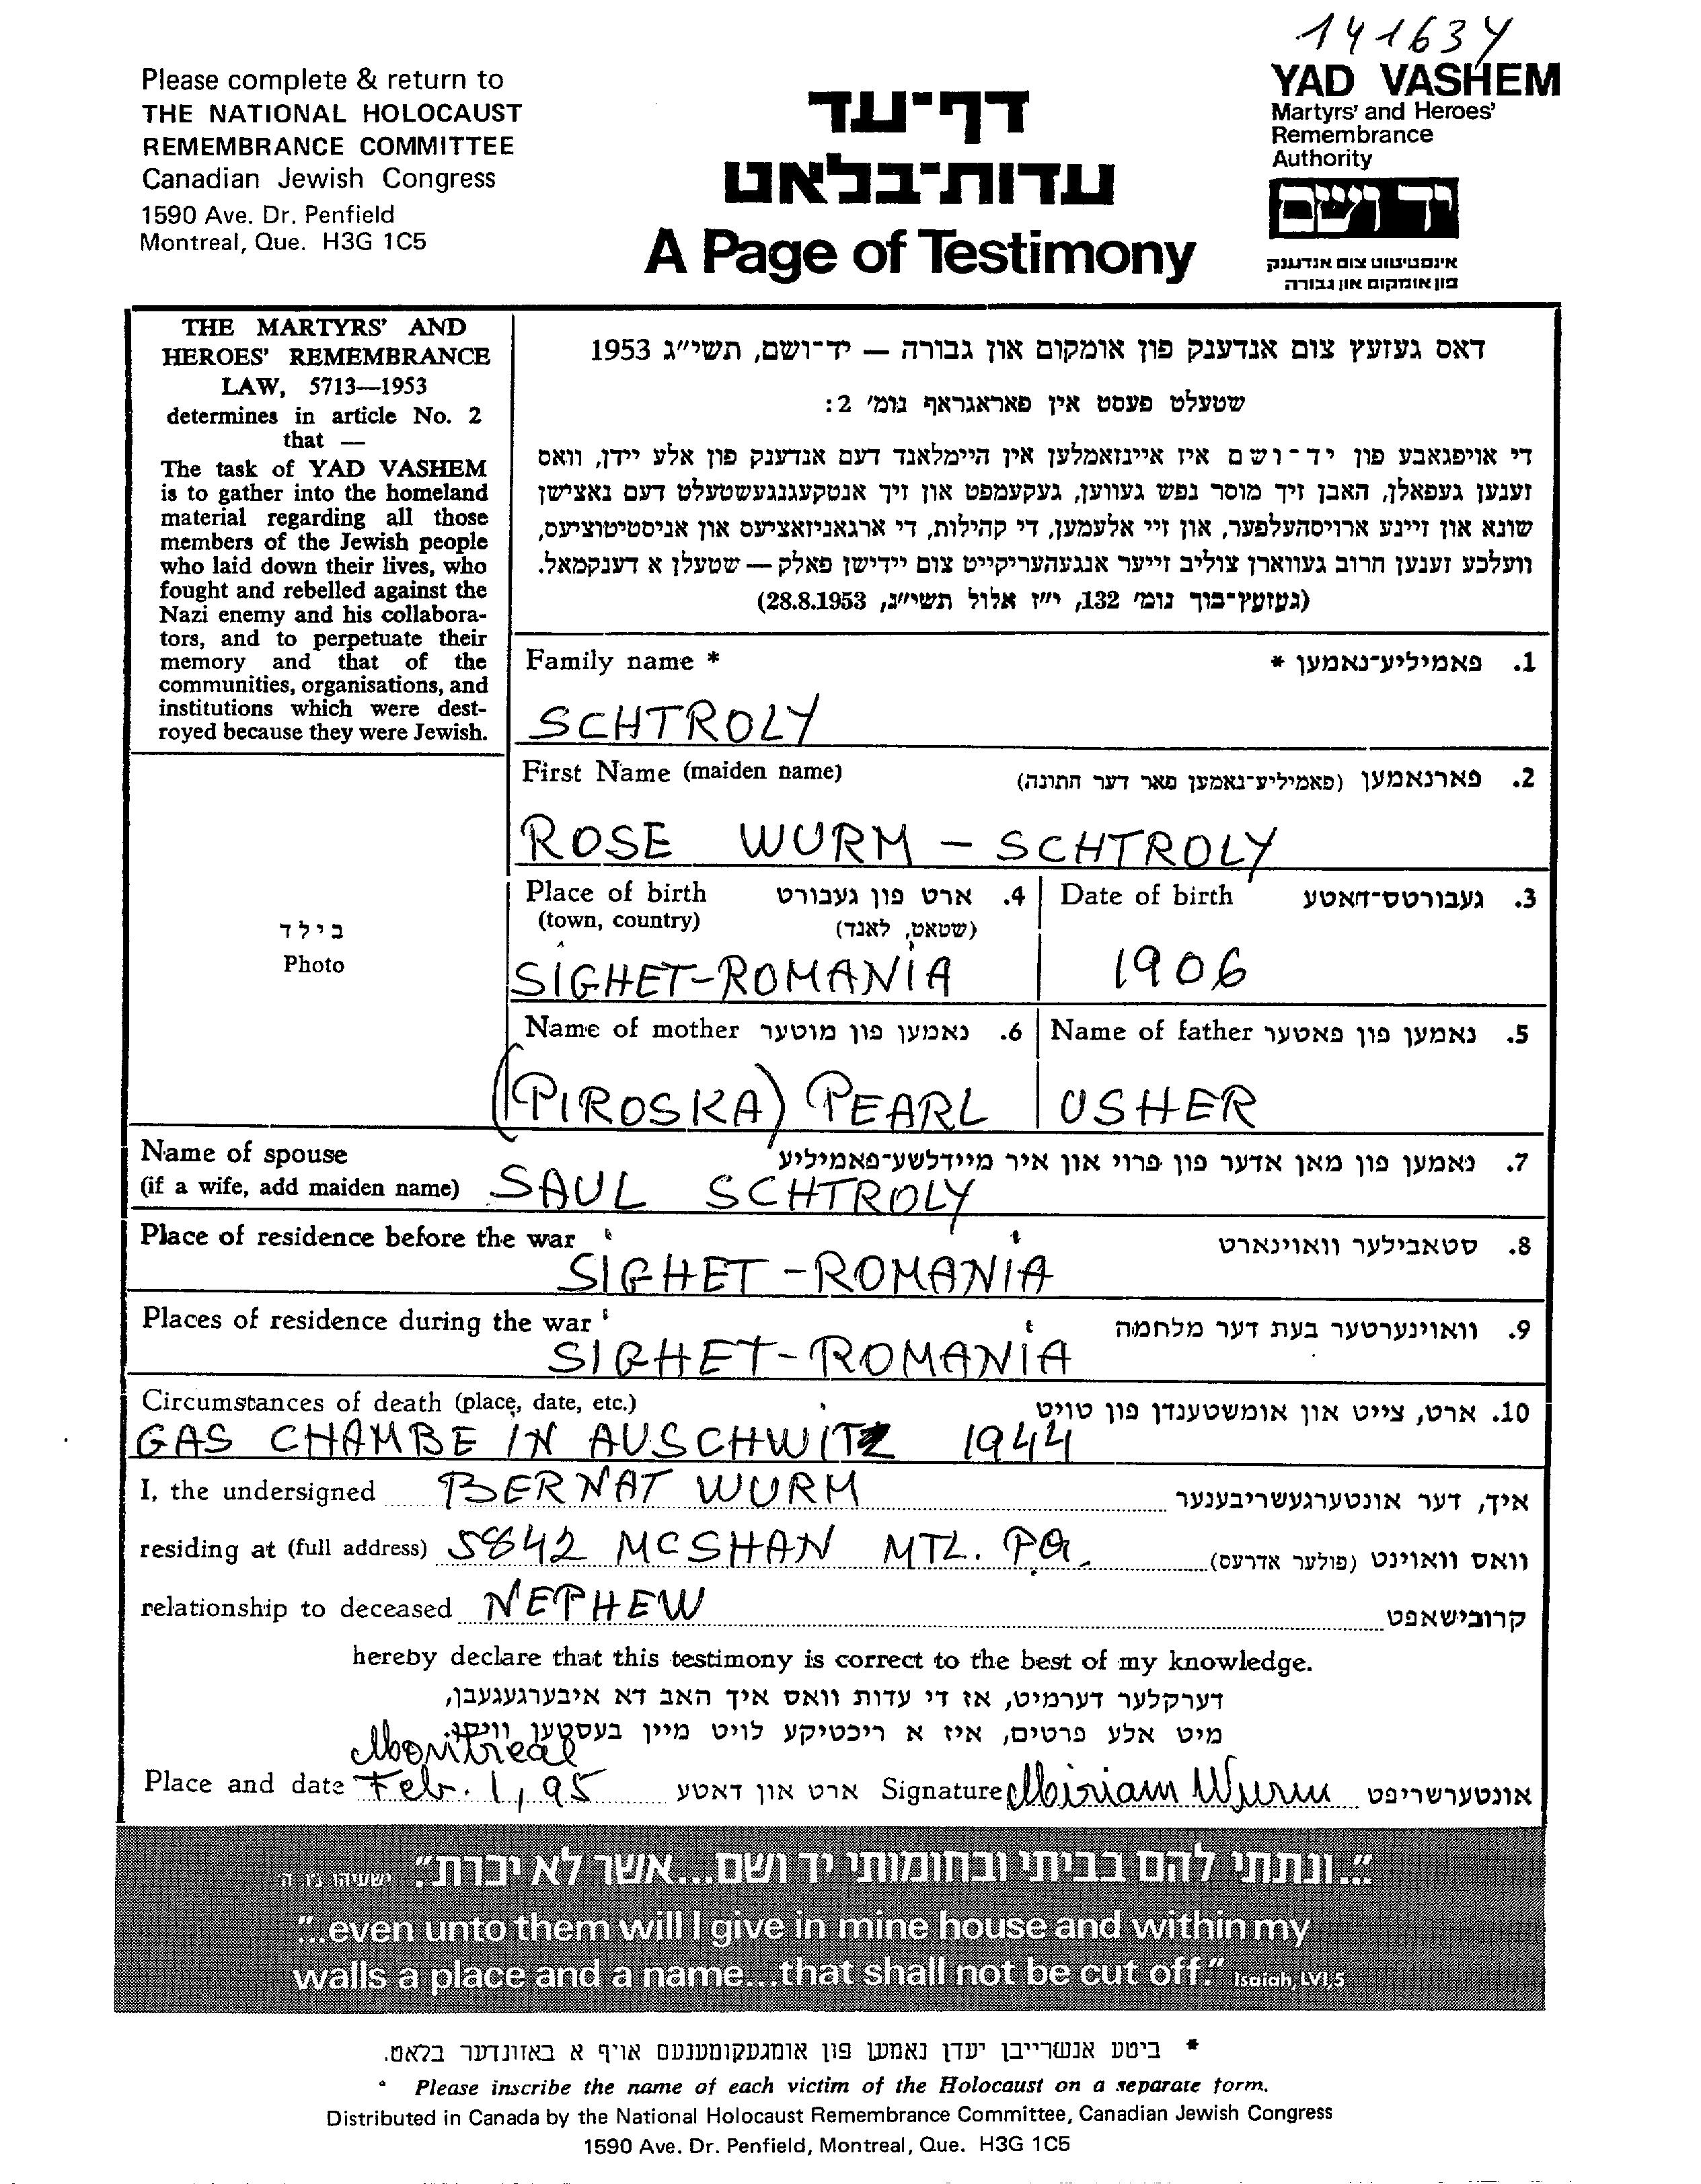 141634
Please complete & return to
THE NATIONAL HOLOCAUST
REMEMBRANCE COMMITTEE
Canadian Jewish Congress
1590 Ave. Dr. Penfield
Montreal, Que. H3G 1C5
דף-עד
עדות-בלאט
A Page of Testimony
YAD VASHEM
Martyrs' and Heroes'
Remembrance
Authority
יד ושם
אינסטיטוט צום אנדענק
פון אומקום און גבורה
THE MARTYRS' AND
HEROES' REMEMBRANCE
LAW, 5713—1953
determines in article No. 2
that —
The task of YAD VASHEM
is to gather into the homeland
material regarding all those
members of the Jewish people
who laid down their lives, who
fought and rebelled against the
Nazi enemy and his collabora-
tors, and to perpetuate their
memory and that of the
communities, organisations, and
institutions which were dest-
royed because they were Jewish.
דאס געזעץ צום אנדענק פון אומקום און גבורה — יד-ושם, תשי״ג 1953
שטעלט פעסט אין פאראגראף נומ׳ 2:
די אויפגאבע פון יד-ושם איז איינזאמלען אין היימלאנד דעם אנדענק פון אלע יידן, וואס
זענען געפאלן, האבן זיך מוסר נפש געווען, געקעמפט און זיך אנטקעגנגעשטעלט דעם נאצישן
שונא און זיינע ארויסהעלפער, און זיי אלעמען, די קהילות, די ארגאניזאציעס און אניסטיטוציעס,
וועלכע זענען חרוב געווארן צוליב זייער אנגעהעריקייט צום יידישן פאלק — שטעלן א דענקמאל.
(געזעץ-בוך נומ׳ 132, י״ז אלול תשי״ג, 28.8.1953)
Family name * פאמיליע-נאמען * .1
SCHTROLY
First Name (maiden name) פארנאמען (פאמיליע-נאמען פאר דער חתונה) .2
ROSE WURM - SCHTROLY
Place of birth ארט פון געבורט .4
(town, country) (שטאט, לאנד)
SIGHET-ROMANIA
Date of birth געבורטס-דאטע .3
1906
Name of mother נאמען פון מוטער .6
(PIROSKA) PEARL
Name of father נאמען פון פאטער .5
USHER
בילד
Photo
Name of spouse נאמען פון מאן אדער פון פרוי און איר מיידלשע-פאמיליע .7
(if a wife, add maiden name) SAUL SCHTROLY
Place of residence before the war סטאבילער וואוינארט .8
SIGHET-ROMANIA
Places of residence during the war וואוינערטער בעת דער מלחמה .9
SIGHET-ROMANIA
Circumstances of death (place, date, etc.) ארט, צייט און אומשטענדן פון טויט .10
GAS CHAMBE IN AUSCHWITZ 1944
I, the undersigned BERNAT WURM איך, דער אונטערגעשריבענער
residing at (full address) 5842 MCSHAN MTL. PQ. וואס וואוינט (פולער אדרעס)
relationship to deceased NEPHEW קרובישאפט
hereby declare that this testimony is correct to the best of my knowledge.
דערקלער דערמיט, אז די עדות וואס איך האב דא איבערגעגעבן,
מיט אלע פרטים, איז א ריכטיקע לויט מיין בעסטען וויסן.
Montreal
Place and date Feb. 1, 95 ארט און דאטע Signature Miriam Wurm אונטערשריפט
"...ונתתי להם בביתי ובחומותי יד ושם...אשר לא יכרת." ישעיהו נ״ו ה
"...even unto them will I give in mine house and within my
walls a place and a name...that shall not be cut off." Isaiah, LVI,5
* ביטע אנשרייבן יעדן נאמען פון אומגעקומענעם אויף א באזונדער בלאט.
* Please inscribe the name of each victim of the Holocaust on a separate form.
Distributed in Canada by the National Holocaust Remembrance Committee, Canadian Jewish Congress
1590 Ave. Dr. Penfield, Montreal, Que. H3G 1C5